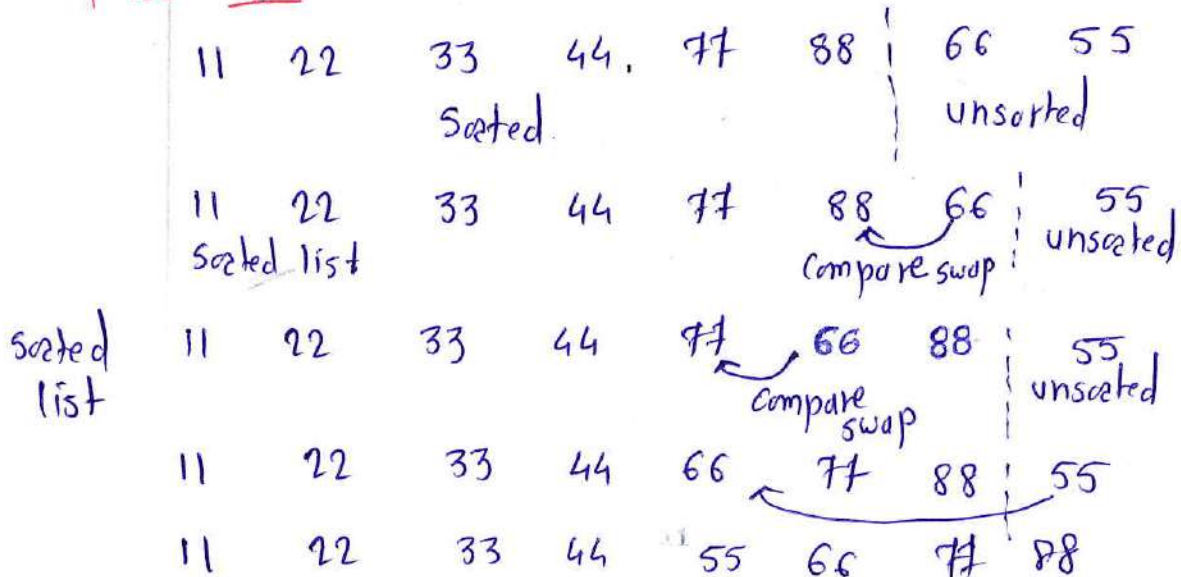 11 22 33 44. 77 88 66 55
Sorted. unsorted
11 22 33 44 77 88 66 55
Sorted list Compare swap unsorted
Sorted list 11 22 33 44 77 66 88 55
Compare swap unsorted
11 22 33 44 66 77 88 55
11 22 33 44 55 66 77 88